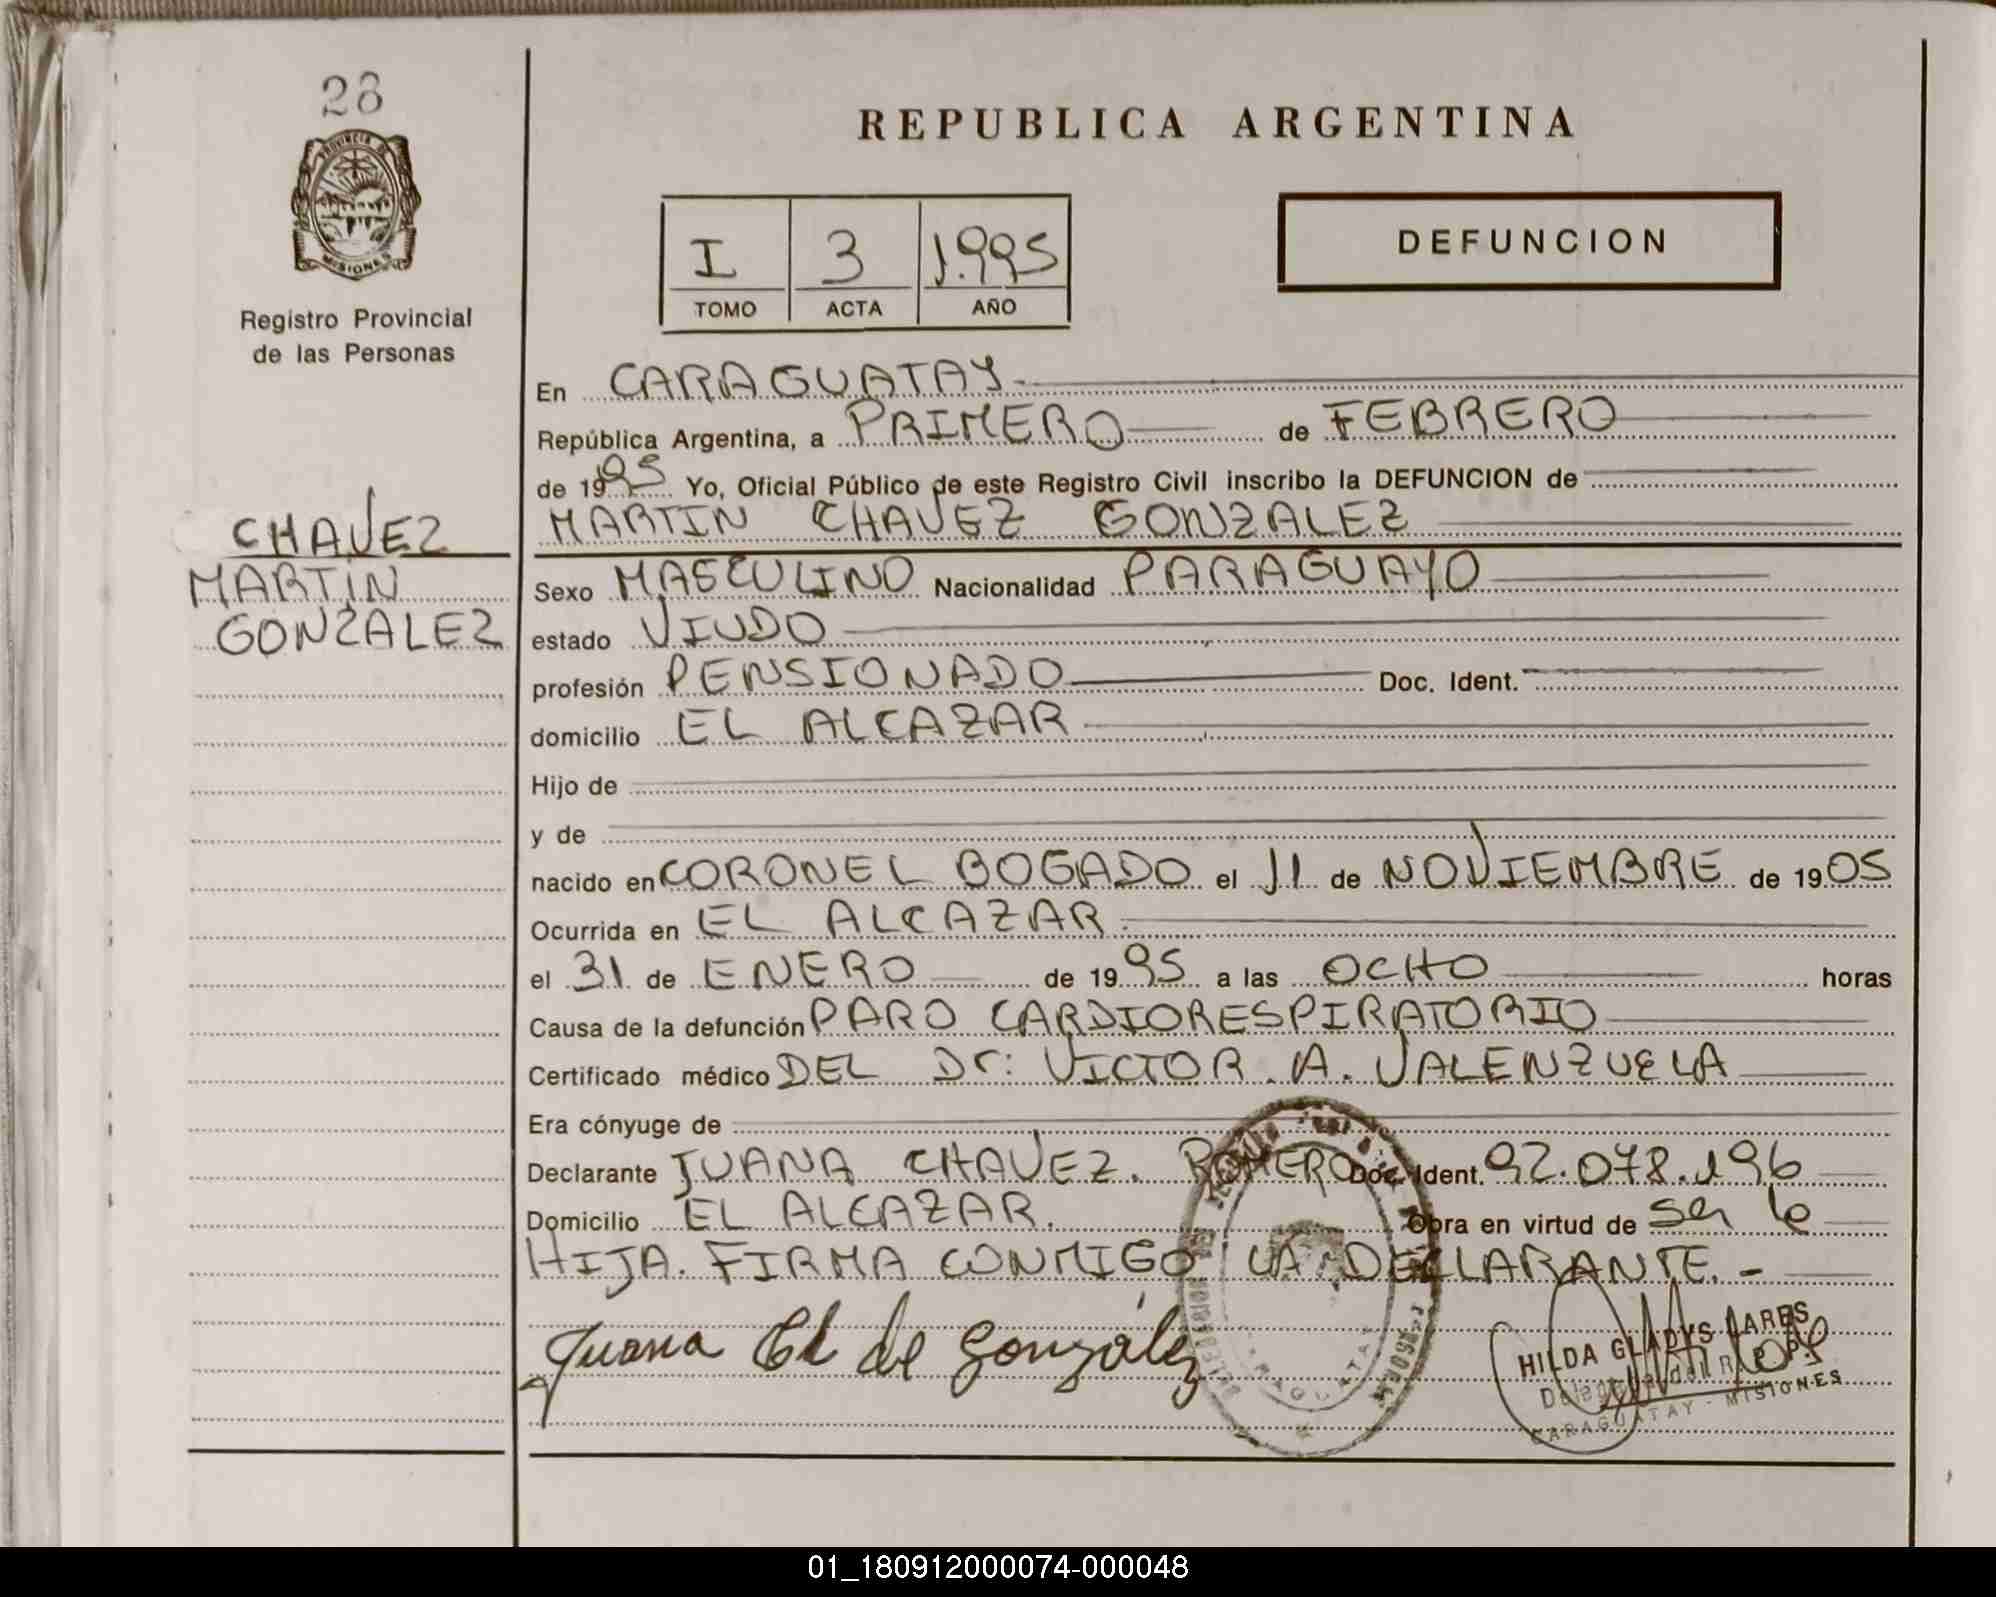 28
PROVINCIA DE
MISIONES
Registro Provincial
de las Personas
CHAVEZ
MARTIN
GONZALEZ
REPUBLICA ARGENTINA
I 3 1.995
TOMO ACTA AÑO
DEFUNCION
En CARAGUATAY.
República Argentina, a PRIMERO de FEBRERO
de 1995 Yo, Oficial Público de este Registro Civil inscribo la DEFUNCION de
MARTIN CHAVEZ GONZALEZ
Sexo MASCULINO Nacionalidad PARAGUAYO
estado VIUDO
profesión PENSIONADO Doc. Ident.
domicilio EL ALCAZAR
Hijo de
y de
nacido en CORONEL BOGADO el 11 de NOVIEMBRE de 1905
Ocurrida en EL ALCAZAR.
el 31 de ENERO de 1995 a las OCHO horas
Causa de la defunción PARO CARDIORESPIRATORIO
Certificado médico DEL Dr: VICTOR. A. VALENZUELA
Era cónyuge de
Declarante JUANA CHAVEZ. ROMERO Doc. Ident. 92.078.196
Domicilio EL ALCAZAR. Obra en virtud de ser la
HIJA. FIRMA CONMIGO LA DECLARANTE. -
Juana Ch de González
HILDA GLADYS LARES
CARAGUATAY - MISIONES
01_180912000074-000048